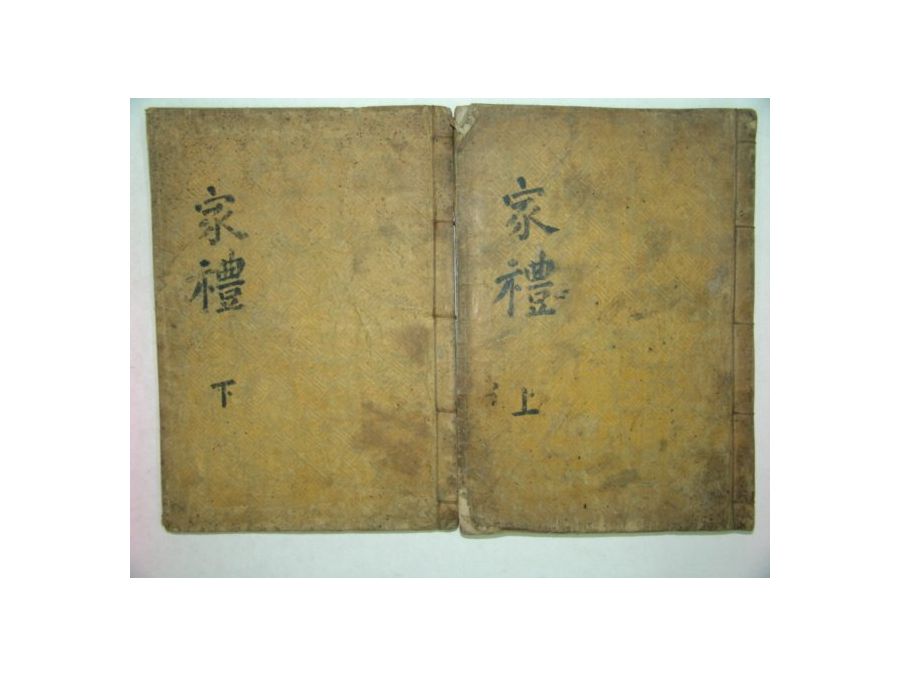 家禮
上
家禮
下